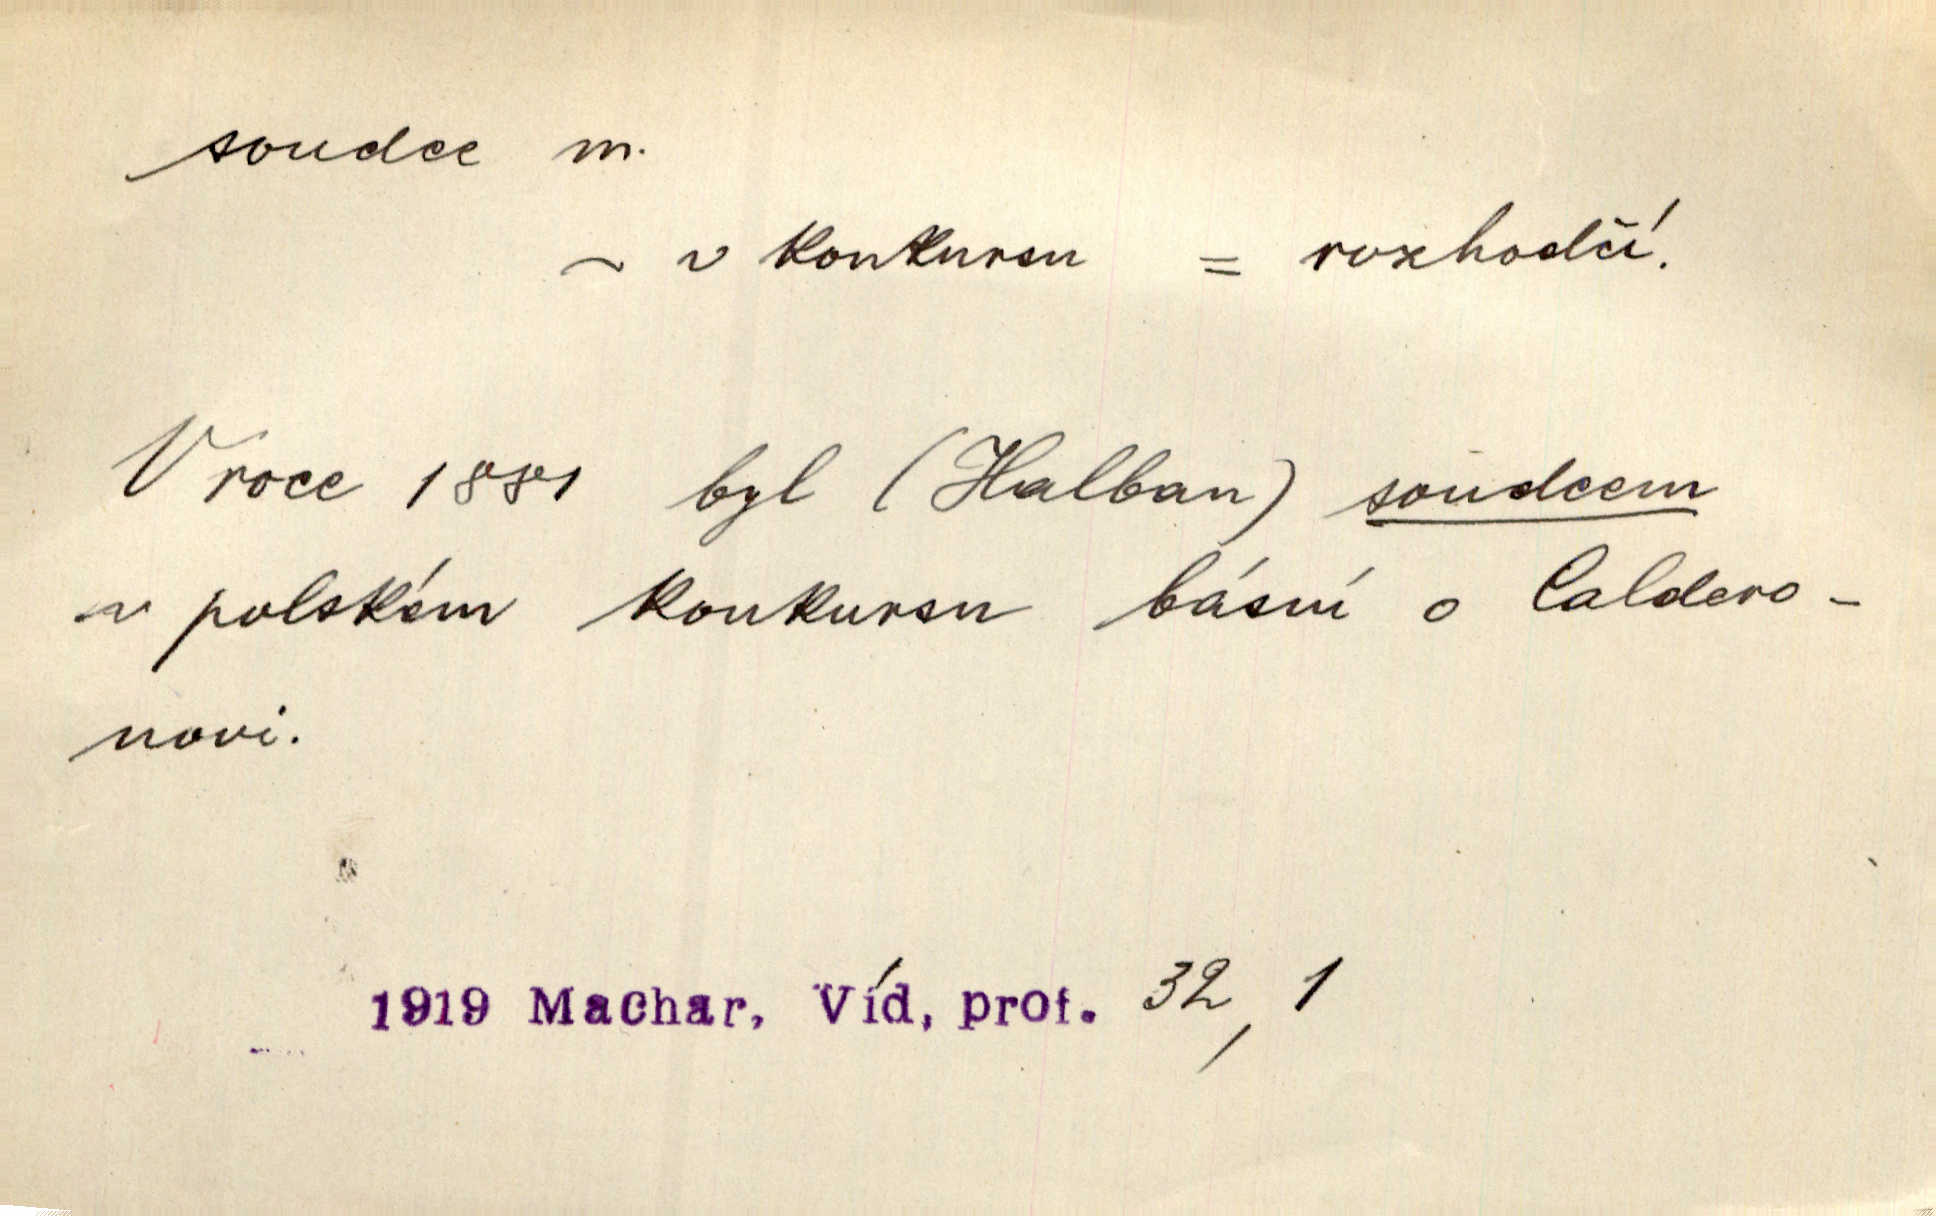 soudce m.
~ v konkursu = rozhodčí.
V roce 1881 byl (Halban) soudcem
v polském konkursu básní o Caldero-
novi.
1919 Machar, Víd, prof. 32, 1